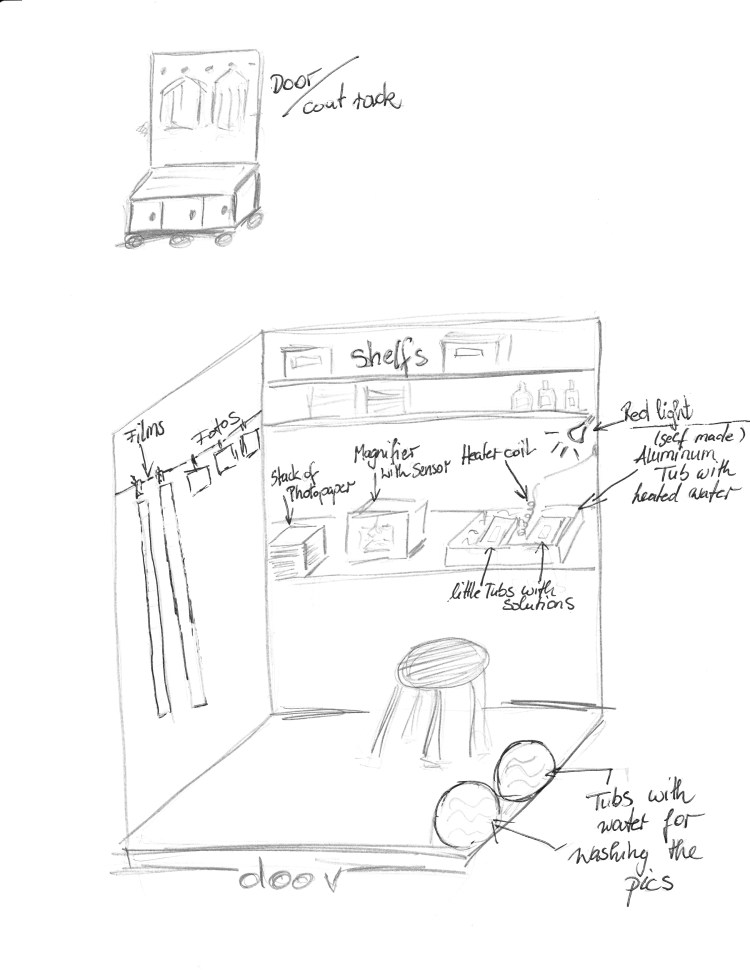 Door/
cout rack
shelfs
Films
Fotos
Stack of
Photopaper
Magnifier
with Sensor
Heater coil
Red light
(self made)
Aluminum
Tub with
heated water
little Tubs with
solutions
Tubs with
water for
washing the
pics
door